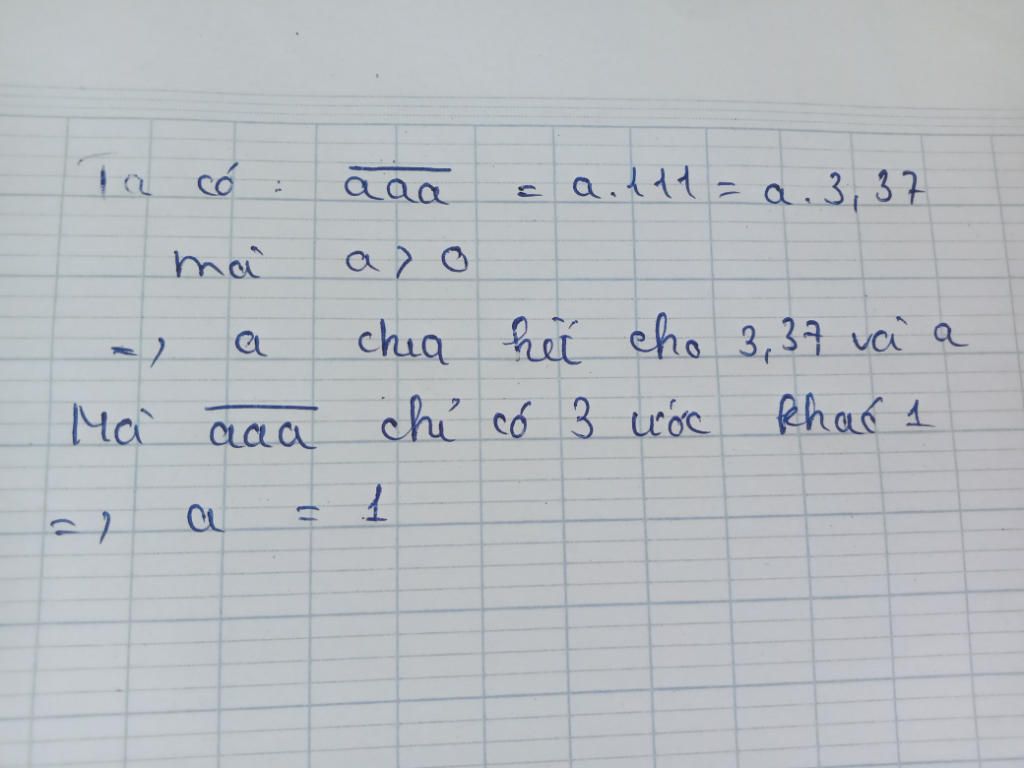 Ta có : a̅a̅a̅ = a.111 = a.3,37
mà a > 0
=> a chia hết cho 3,37 và a
Mà a̅a̅a̅ chỉ có 3 ước khác 1
=> a = 1